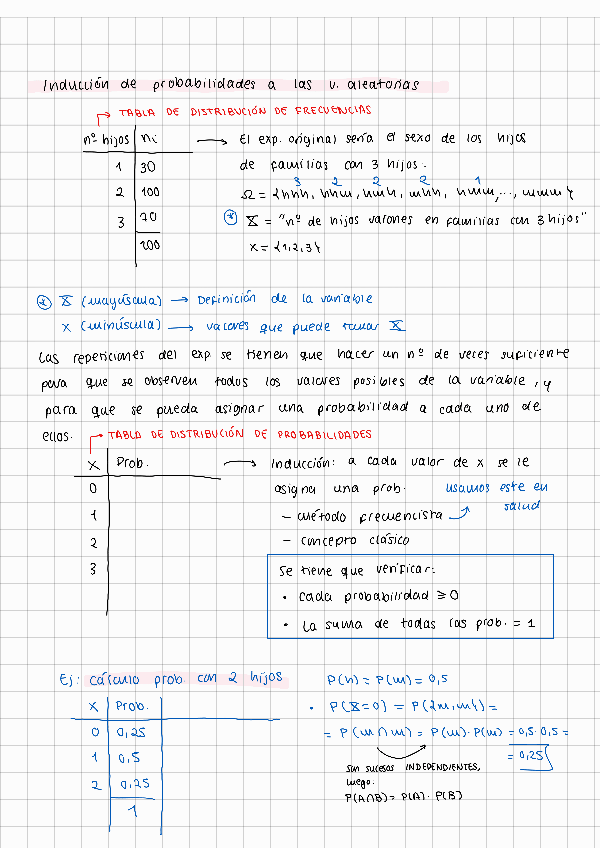 Inducción de probabilidades a las v. aleatorias
→ TABLA DE DISTRIBUCIÓN DE FRECUENCIAS
nº hijos | ni
1 | 30
2 | 100
3 | 70
200
→ El exp. original sería el sexo de los hijos
de familias con 3 hijos.
3 2 2 2 1
Ω = {hhh, hhm, hmh, mhh, hmm, ..., mmm}
* X = "nº de hijos varones en familias con 3 hijos"
x = {1,2,3}
* X (mayúscula) → Definición de la variable
x (minúscula) → valores que puede tomar X
Las repeticiones del exp. se tienen que hacer un nº de veces suficiente
para que se observen todos los valores posibles de la variable, y
para que se pueda asignar una probabilidad a cada uno de
ellos.
→ TABLA DE DISTRIBUCIÓN DE PROBABILIDADES
x | Prob.
0
1
2
3
→ Inducción: a cada valor de x se le
asigna una prob.
- método frecuencista
usamos este en
salud
- concepto clásico
Se tiene que verificar:
• Cada probabilidad ≥ 0
• La suma de todas las prob. = 1
Ej: cálculo prob. con 2 hijos
x | Prob.
0 | 0,25
1 | 0,5
2 | 0,25
1
P(h) = P(m) = 0,5
• P(X=0) = P({m,m}) =
= P(m∩m) = P(m)·P(m) = 0,5·0,5 =
= 0,25
Son sucesos INDEPENDIENTES,
luego:
P(A∩B) = P(A)·P(B)